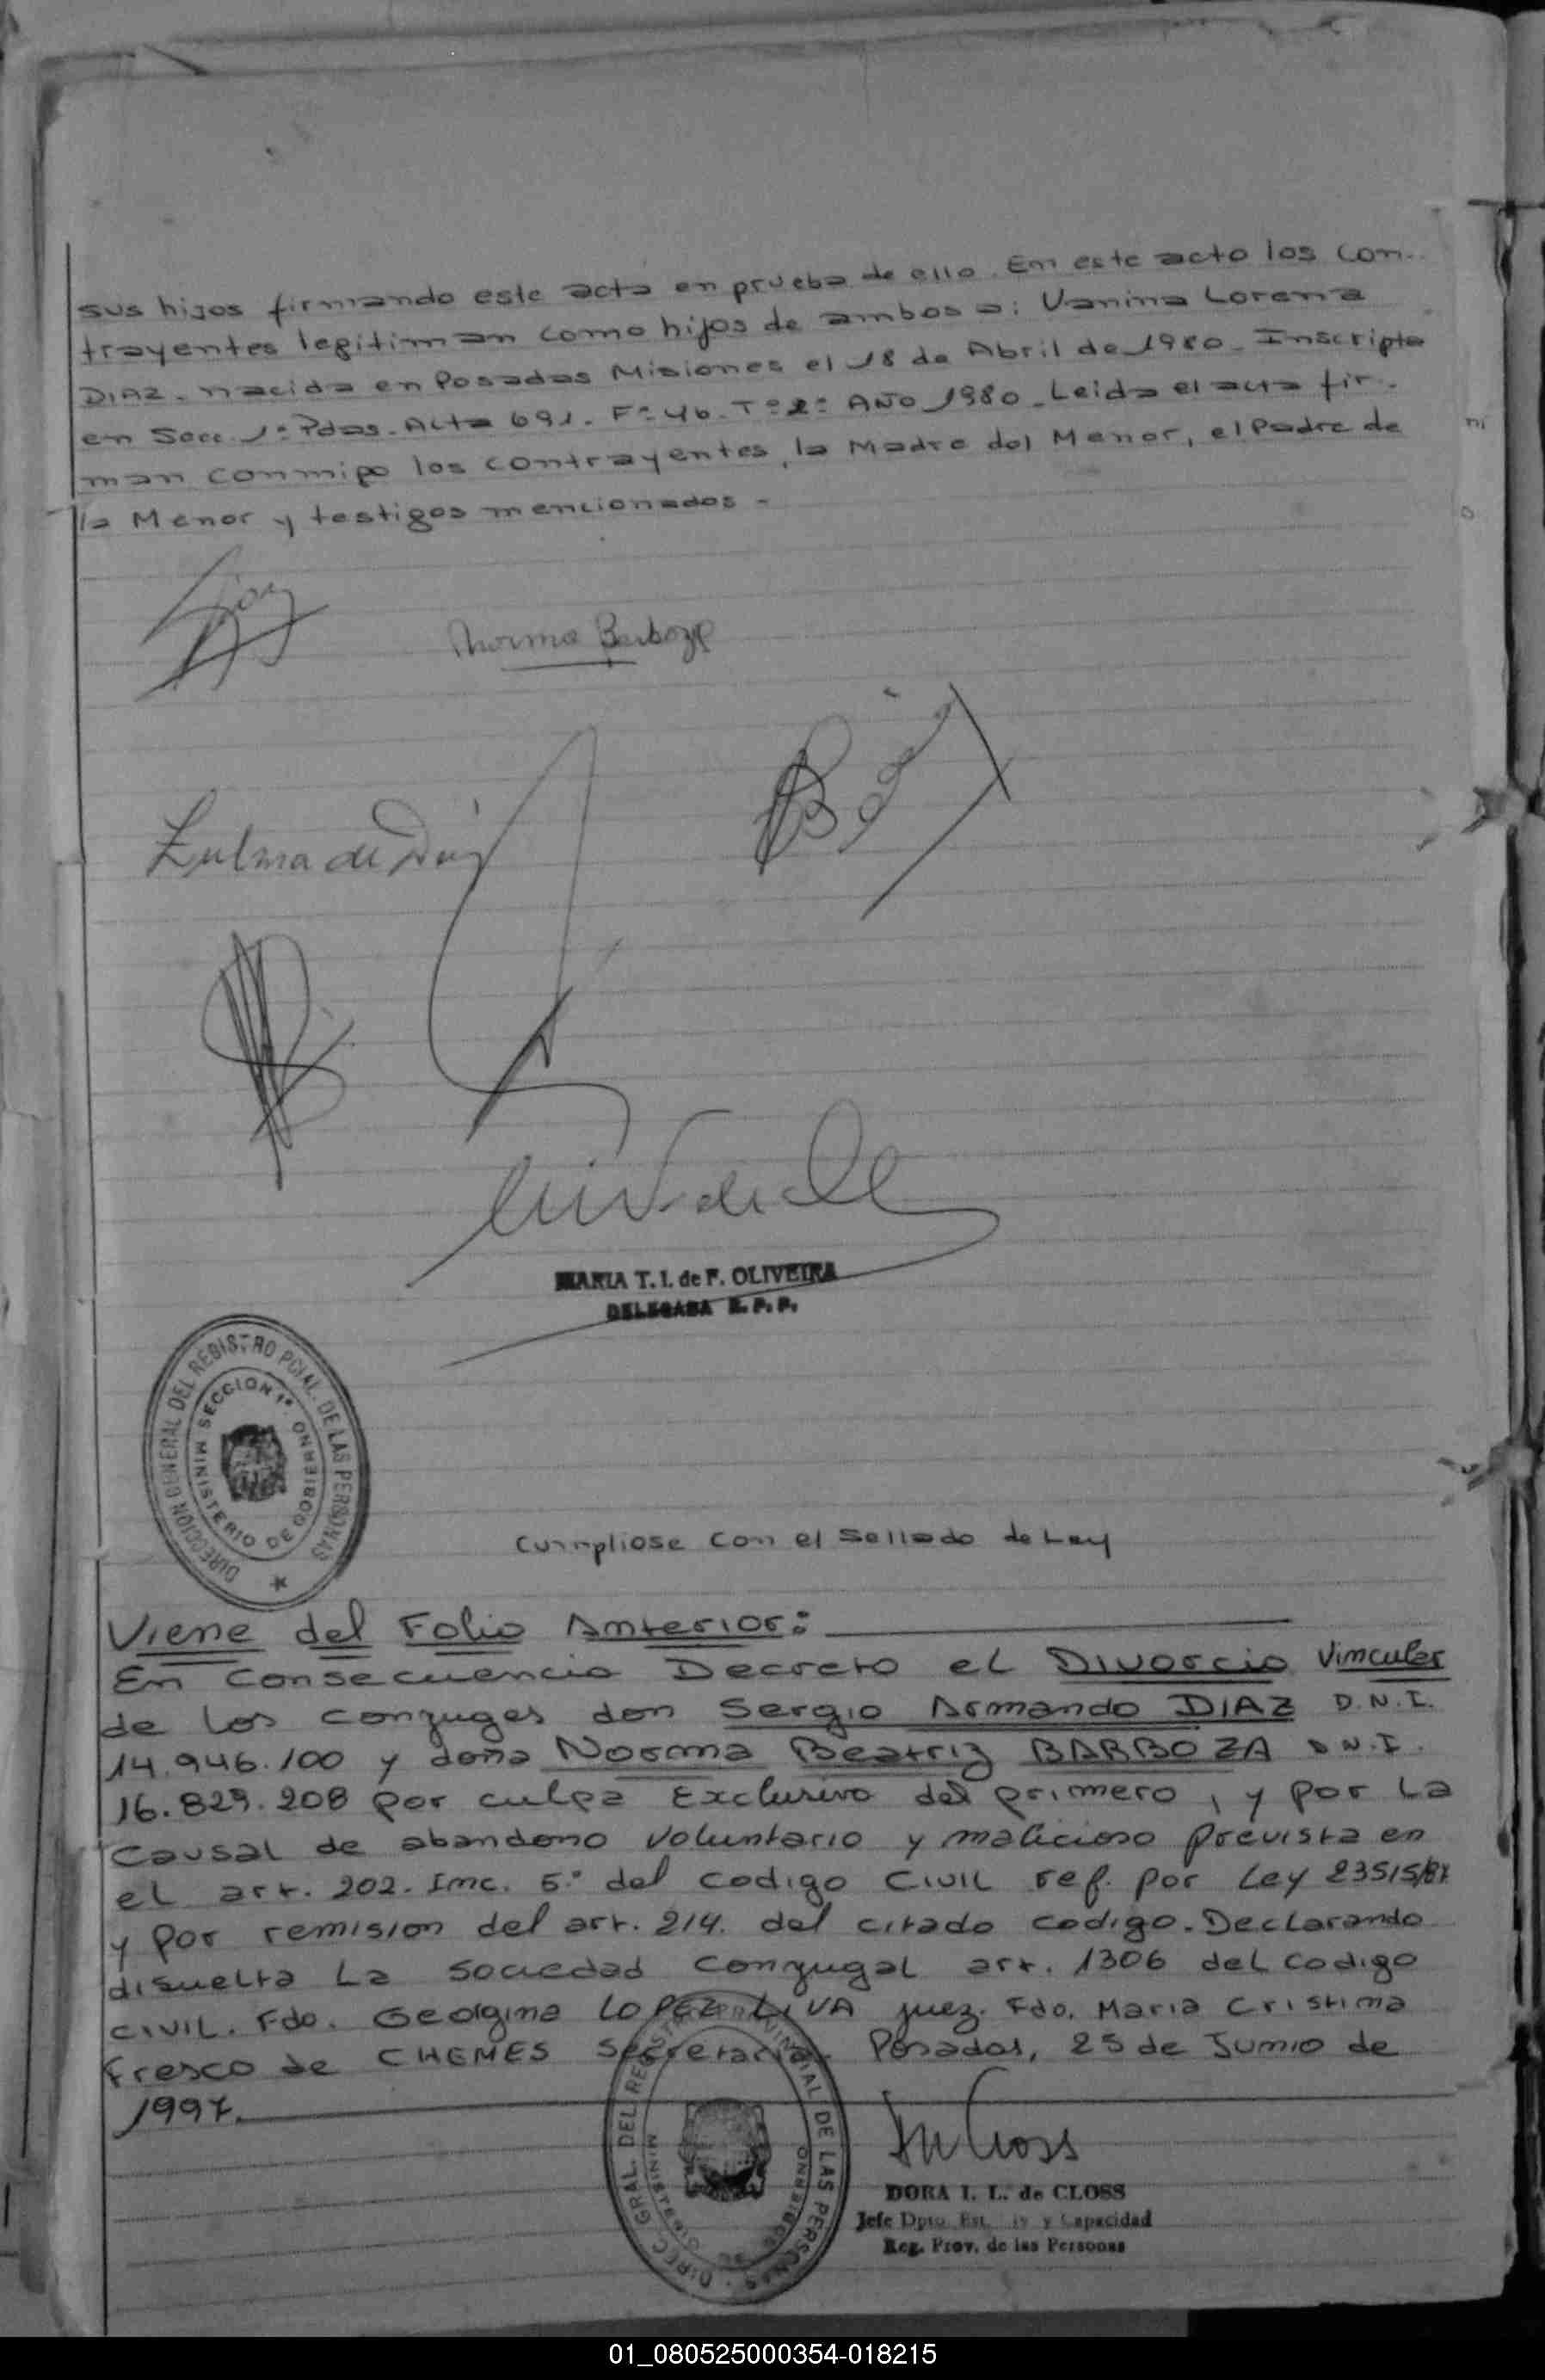 sus hijos firmando este acta en prueba de ello. En este acto los con..
trayentes legitiman como hijos de ambos a: Vanina Lorena
DIAZ. nacida en Posadas Misiones el 18 de Abril de 1980. Inscripta
en Secc. 1º Pdas. Acta 691. Fº 46. Tº 2º AÑO 1980. Leida el acta fir.
man conmigo los contrayentes, la Madre del Menor, el Padre de
la Menor y testigos mencionados -
Diaz
Norma Barboza
Zulma de Diaz
MARIA T. I. de F. OLIVEIRA
DELEGADA R. P. P.
DIRECCION GENERAL DEL REGISTRO PCIAL. DE LAS PERSONAS
SECCION 1º
MINISTERIO DE GOBIERNO
Cumpliose con el sellado de Ley
Viene del Folio Anterior:
En Consecuencia Decreto el Divorcio Vincular
de los conyuges don Sergio Armando DIAZ D.N.I.
14.946.100 y doña Norma Beatriz BARBOZA D.N.I.
16.829.208 por culpa Exclusiva del primero, y por La
causal de abandono voluntario y malicioso prevista en
el art. 202. Inc. 5º del codigo CIVIL ref. por Ley 23515/87
y por remision del art. 214. del citado codigo. Declarando
disuelta La sociedad conyugal art. 1306 del codigo
CIVIL. Fdo. Georgina LOPEZ LIVA juez. Fdo. Maria Cristina
Fresco de CHEMES Secretaria. Posadas, 25 de Junio de
1997.
DIREC. GRAL. DEL REGISTRO PROVINCIAL DE LAS PERSONAS
MINISTERIO DE GOBIERNO
DORA I. L. de CLOSS
Jefe Dpto. Est. Civ y Capacidad
Reg. Prov. de las Personas
01_080525000354-018215